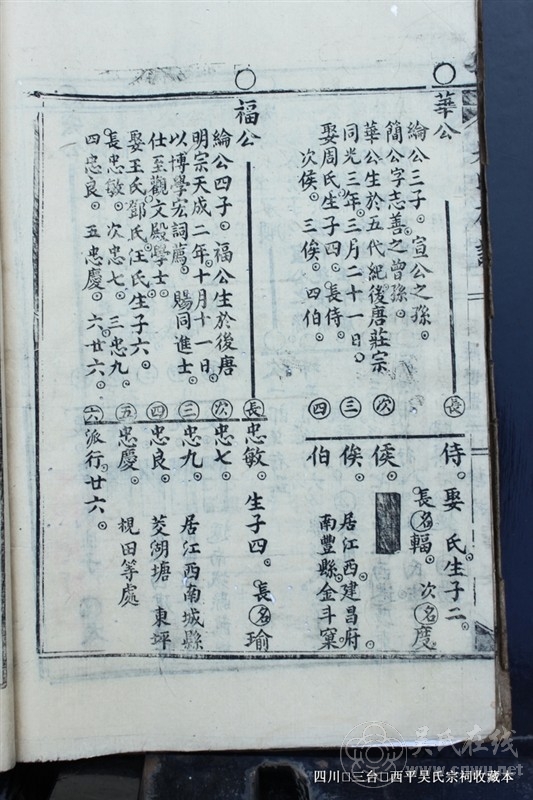 華公
綸公三子。宣公之孫。
簡公字忠善之曾孫。
華公生於五代紀後唐莊宗
同光三年。三月二十一日。
娶周氏生子四。長侍。
次侯。三俟。四伯。
長
侍。娶 氏生子二。
長名輻。次名度
次
侯。
三
俟。居江西建昌府
南豐縣金斗窠
四
伯
福公
綸公四子。福公生於後唐
明宗天成二年。十月十一日。
以博學宏詞薦。賜同進士。
仕至觀文殿學士。
娶王氏鄧氏汪氏生子六。
長忠敏。次忠七。三忠九。
四忠良。五忠慶。六廿六。
長
忠敏。生子四。長名瑜
次
忠七。
三
忠九。居江西南城縣
四
忠良。菱湖塘 東坪
五
忠慶。梘田等處
六
派行。廿六。
四川□三台□西平吴氏宗祠收藏本
吴氏在线
www.cnwu.net